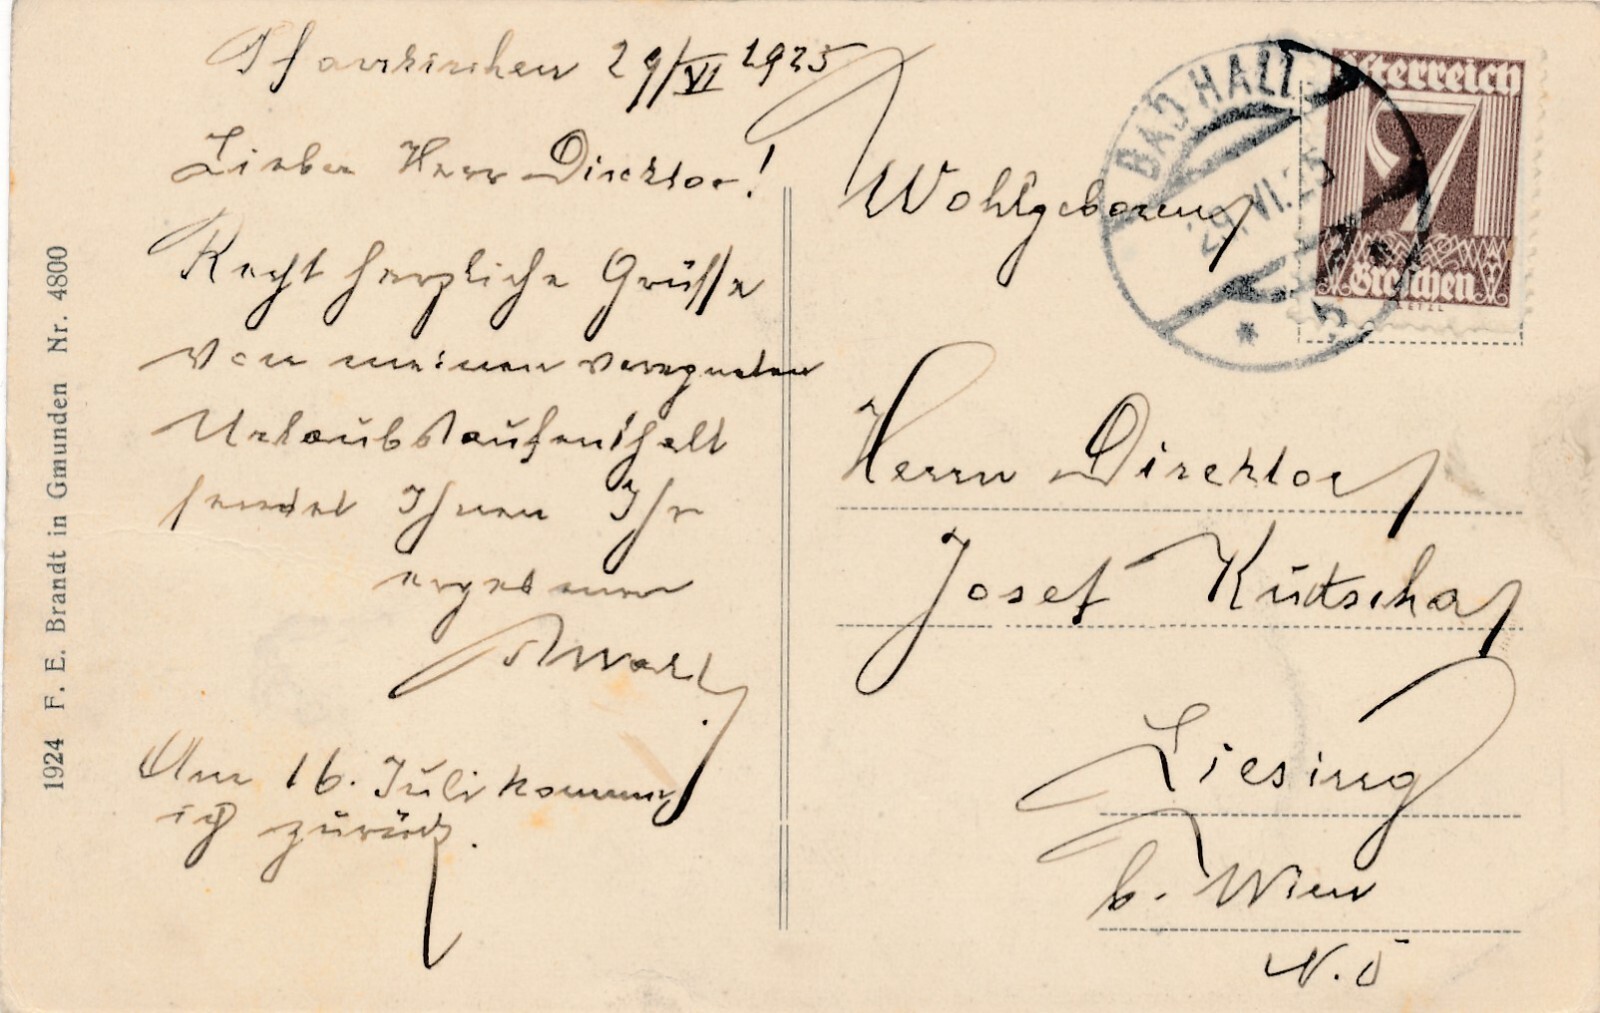 Pfarrkirchen 29/VI 1925
Lieber Herr Direktor!
Recht herzliche Grüsse
von meinem verregneten
Urlaubsaufenthalt
sendet Ihnen Ihr
ergebener
Am 16. Juli komme
ich zurück.
1924 F. E. Brandt in Gmunden Nr. 4800
BAD HALL
29.VI.25
Österreich
7
Groschen
Wohlgeboren
Herrn Direktor
Josef Kutscha
Liesing
b. Wien
N.Ö